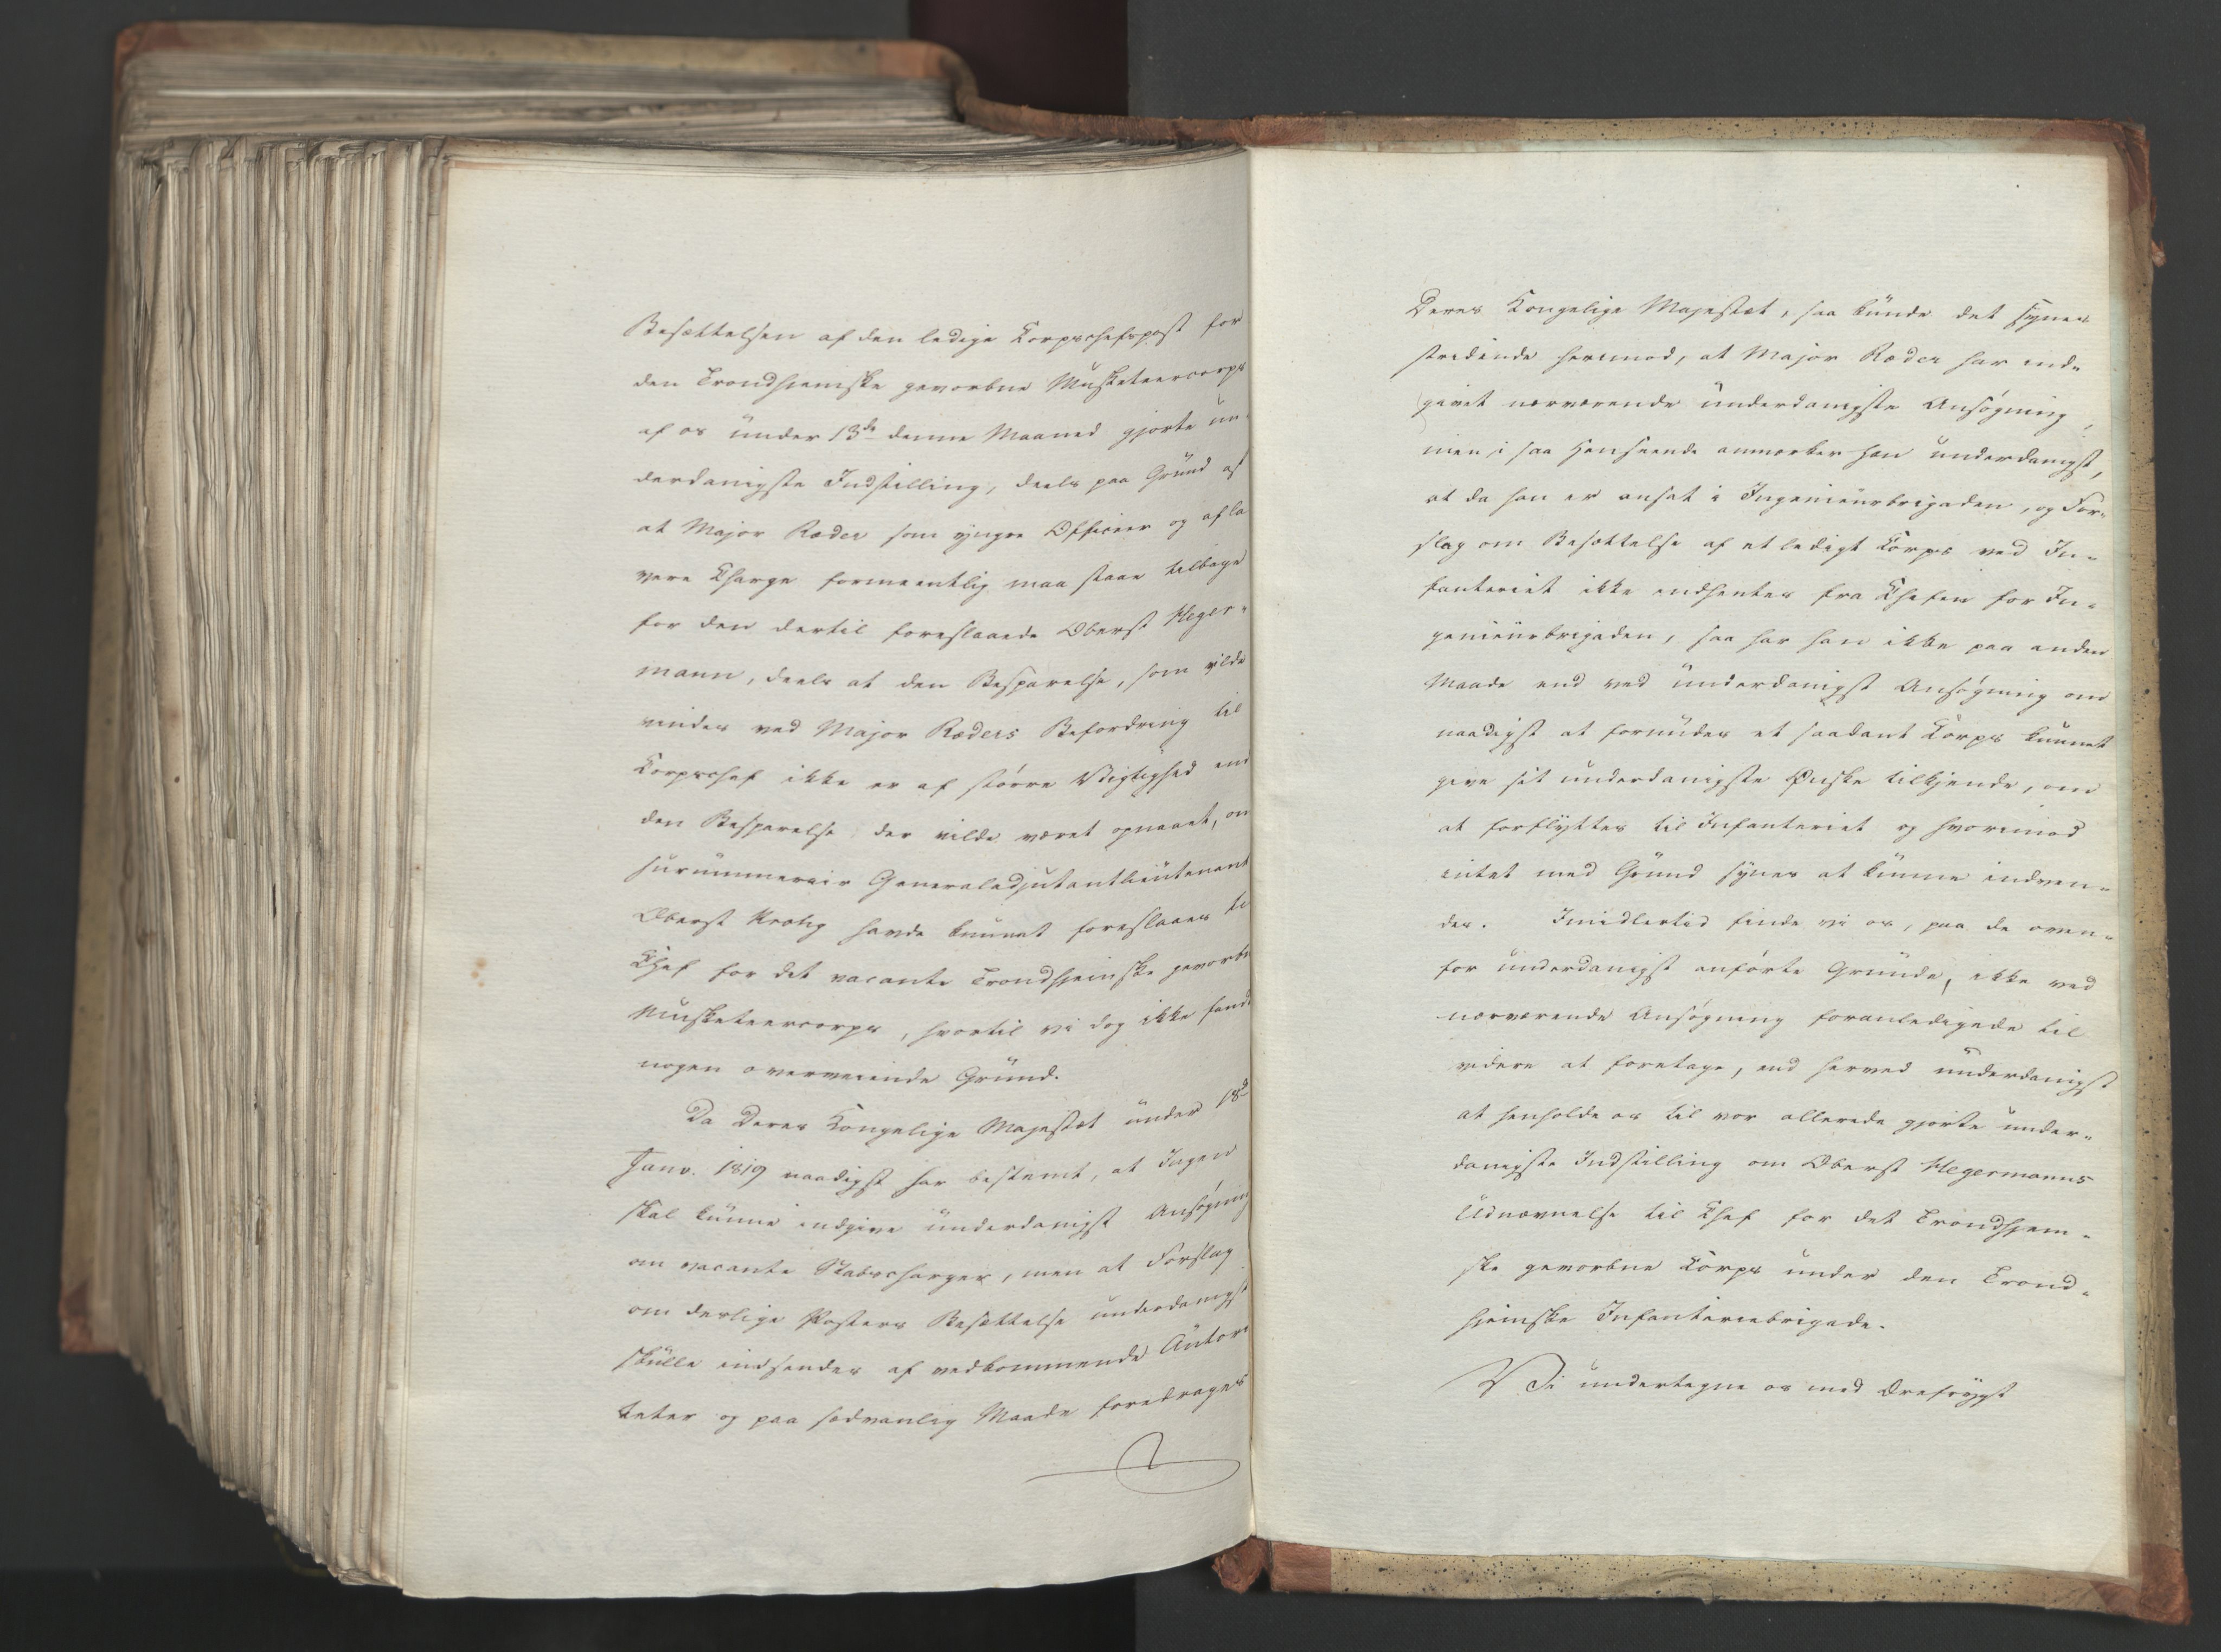 Besættelsen af den ledige Korpschefspost for
den Trondhiemske gevorbne Musketeercorps
af os under 13de denne Maaned gjorte un-
derdanigste Indstilling, deels paa Grund af
at Major Ræder som yngre Officier og af la
vere Charge formeentlig maa staae tilbage
for den dertil foreslaaede Oberst Heger-
mann, deels at den Besparelse, som vilde
vindes ved Major Ræders Befordring til
Korpschef ikke er af større Vigtighed end
den Besparelse der vilde været opnaaet, om
surnummerair Generaladjutantlieutenant
Oberst Krohg havde kunnet foreslaaes til
Chef for det vacante Trondhjemske gevorbne
Musketeercorps, hvortil vi dog ikke fandt
nogen overveiende Grund.
Da Deres Kongelige Majestæt under 18d
Janv. 1819 naadigst har bestemt, at Ingen
skal kunne indgive underdanigst Ansøgning
om vacante Stabscharger, men at Forslag
om deslige Posters Besættelse underdanigst
skulle indsendes af vedkommende Autori
teter og paa sædvanlig Maade foredrages
Deres Kongelige Majestæt, saa kunde det synes
stridende herimod, at Major Ræder har ind-
givet nærværende underdanigste Ansøgning,
men i saa Henseende anmærker han underdanigst,
at da han er ansat i Ingenieurbrigaden, og For-
slag om Besættelse af et ledigt Korps ved In-
fanteriet ikke indhentes fra Chefen for In-
genieurbrigaden, saa har han ikke paa anden
Maade end ved underdanigst Ansøgning om
naadigst at forundes et saadant Korps kunnet
give sit underdanigste Ønske tilkjende, om
at forflyttes til Infanteriet og hvorimod
intet med Grund synes at kunne indven-
des. Imidlertid finde vi os, paa de oven-
for underdanigst anførte Grunde, ikke ved
nærværende Ansøgning foranledigede til
videre at foretage, end herved underdanigst
at henholde os til vor allerede gjorte under-
danigste Indstilling om Oberst Hegermanns
Udnævnelse til Chef for det Trondhjem-
ske gevorbne Korps under den Trond-
hjemske Infanteriebrigade.
Vi undertegne os med Ærefrygt